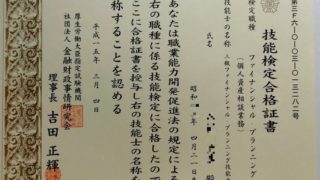 第三F六-〇-〇三-〇一三二八二号
技能検定合格証書
検定職種
ファイナンシャル・プランニング
(個人資産相談業務)
技能士の名称
ファイナンシャル・プランニング技能士
氏名
昭和
年四月二
日
あなたは職業能力開発促進法の規定による
右の職種に係る技能検定に合格したので
ここに合格証書を授与し右の技能士の名称を
称することを認める
平成一五年三月四日
厚生労働大臣指定試験機関
社団法人金融財政事情研究会
理事長 吉田正輝